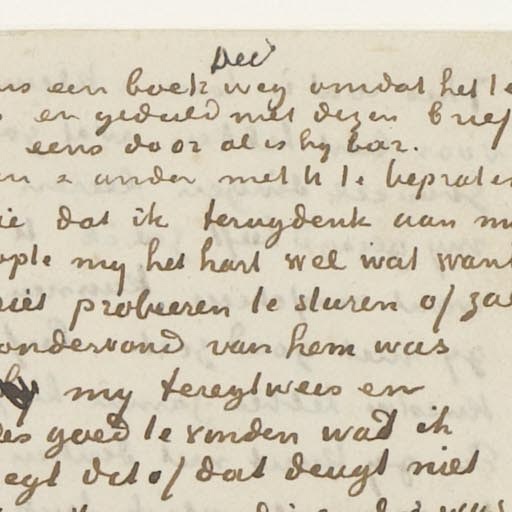 Dec
ns een boek weg omdat het le
en geduld met dezen brief
eens door al is hy bar.
en ander met U te bepraten
ie dat ik terugdenk aan m
opte my het hart wel wat want
niet probeeren te sturen of zal
ondervond van hem was
my teregtwees en
des goed te vinden wat ik
egt dit of dat deugt niet